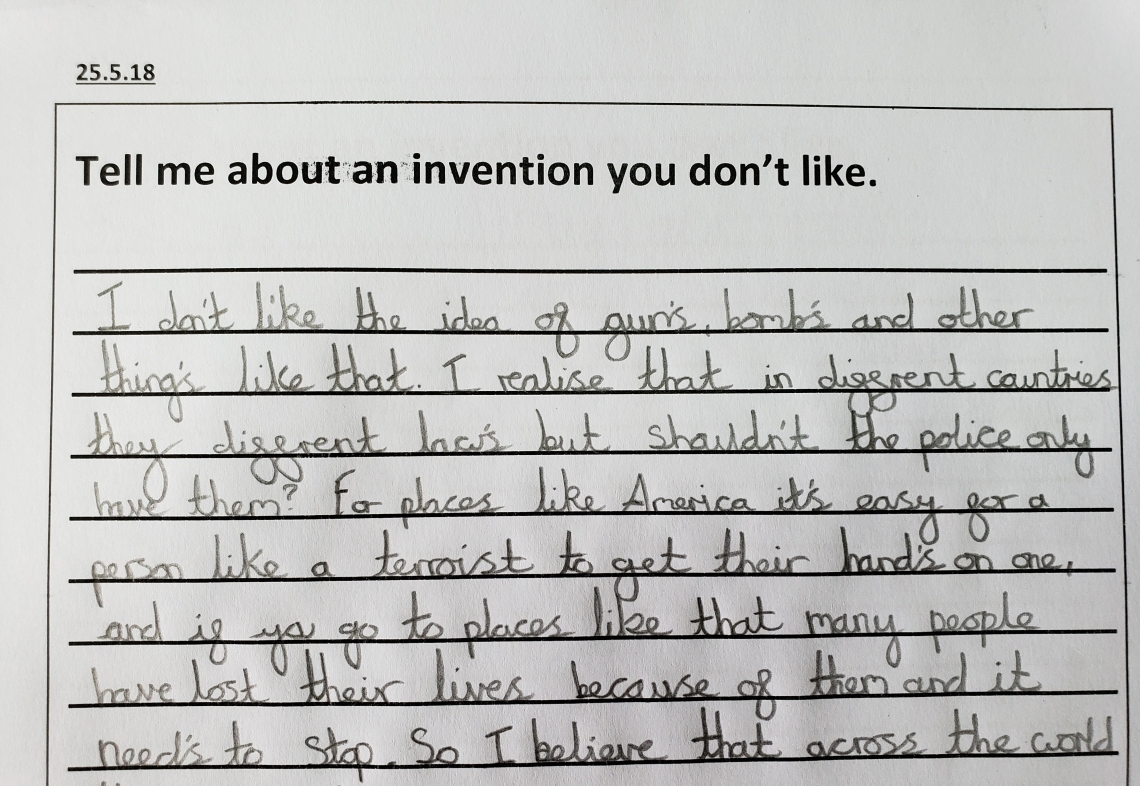 25.5.18
Tell me about an invention you don't like.
I don't like the idea of gun's, bomb's and other
thing's like that. I realise that in diffrent countries
they diffrent law's but shouldn't the police only
have them? For places like America it's easy for a
person like a terroist to get their hand's on one,
and if you go to places like that many people
have lost their lives because of them and it
need's to stop. So I believe that across the world